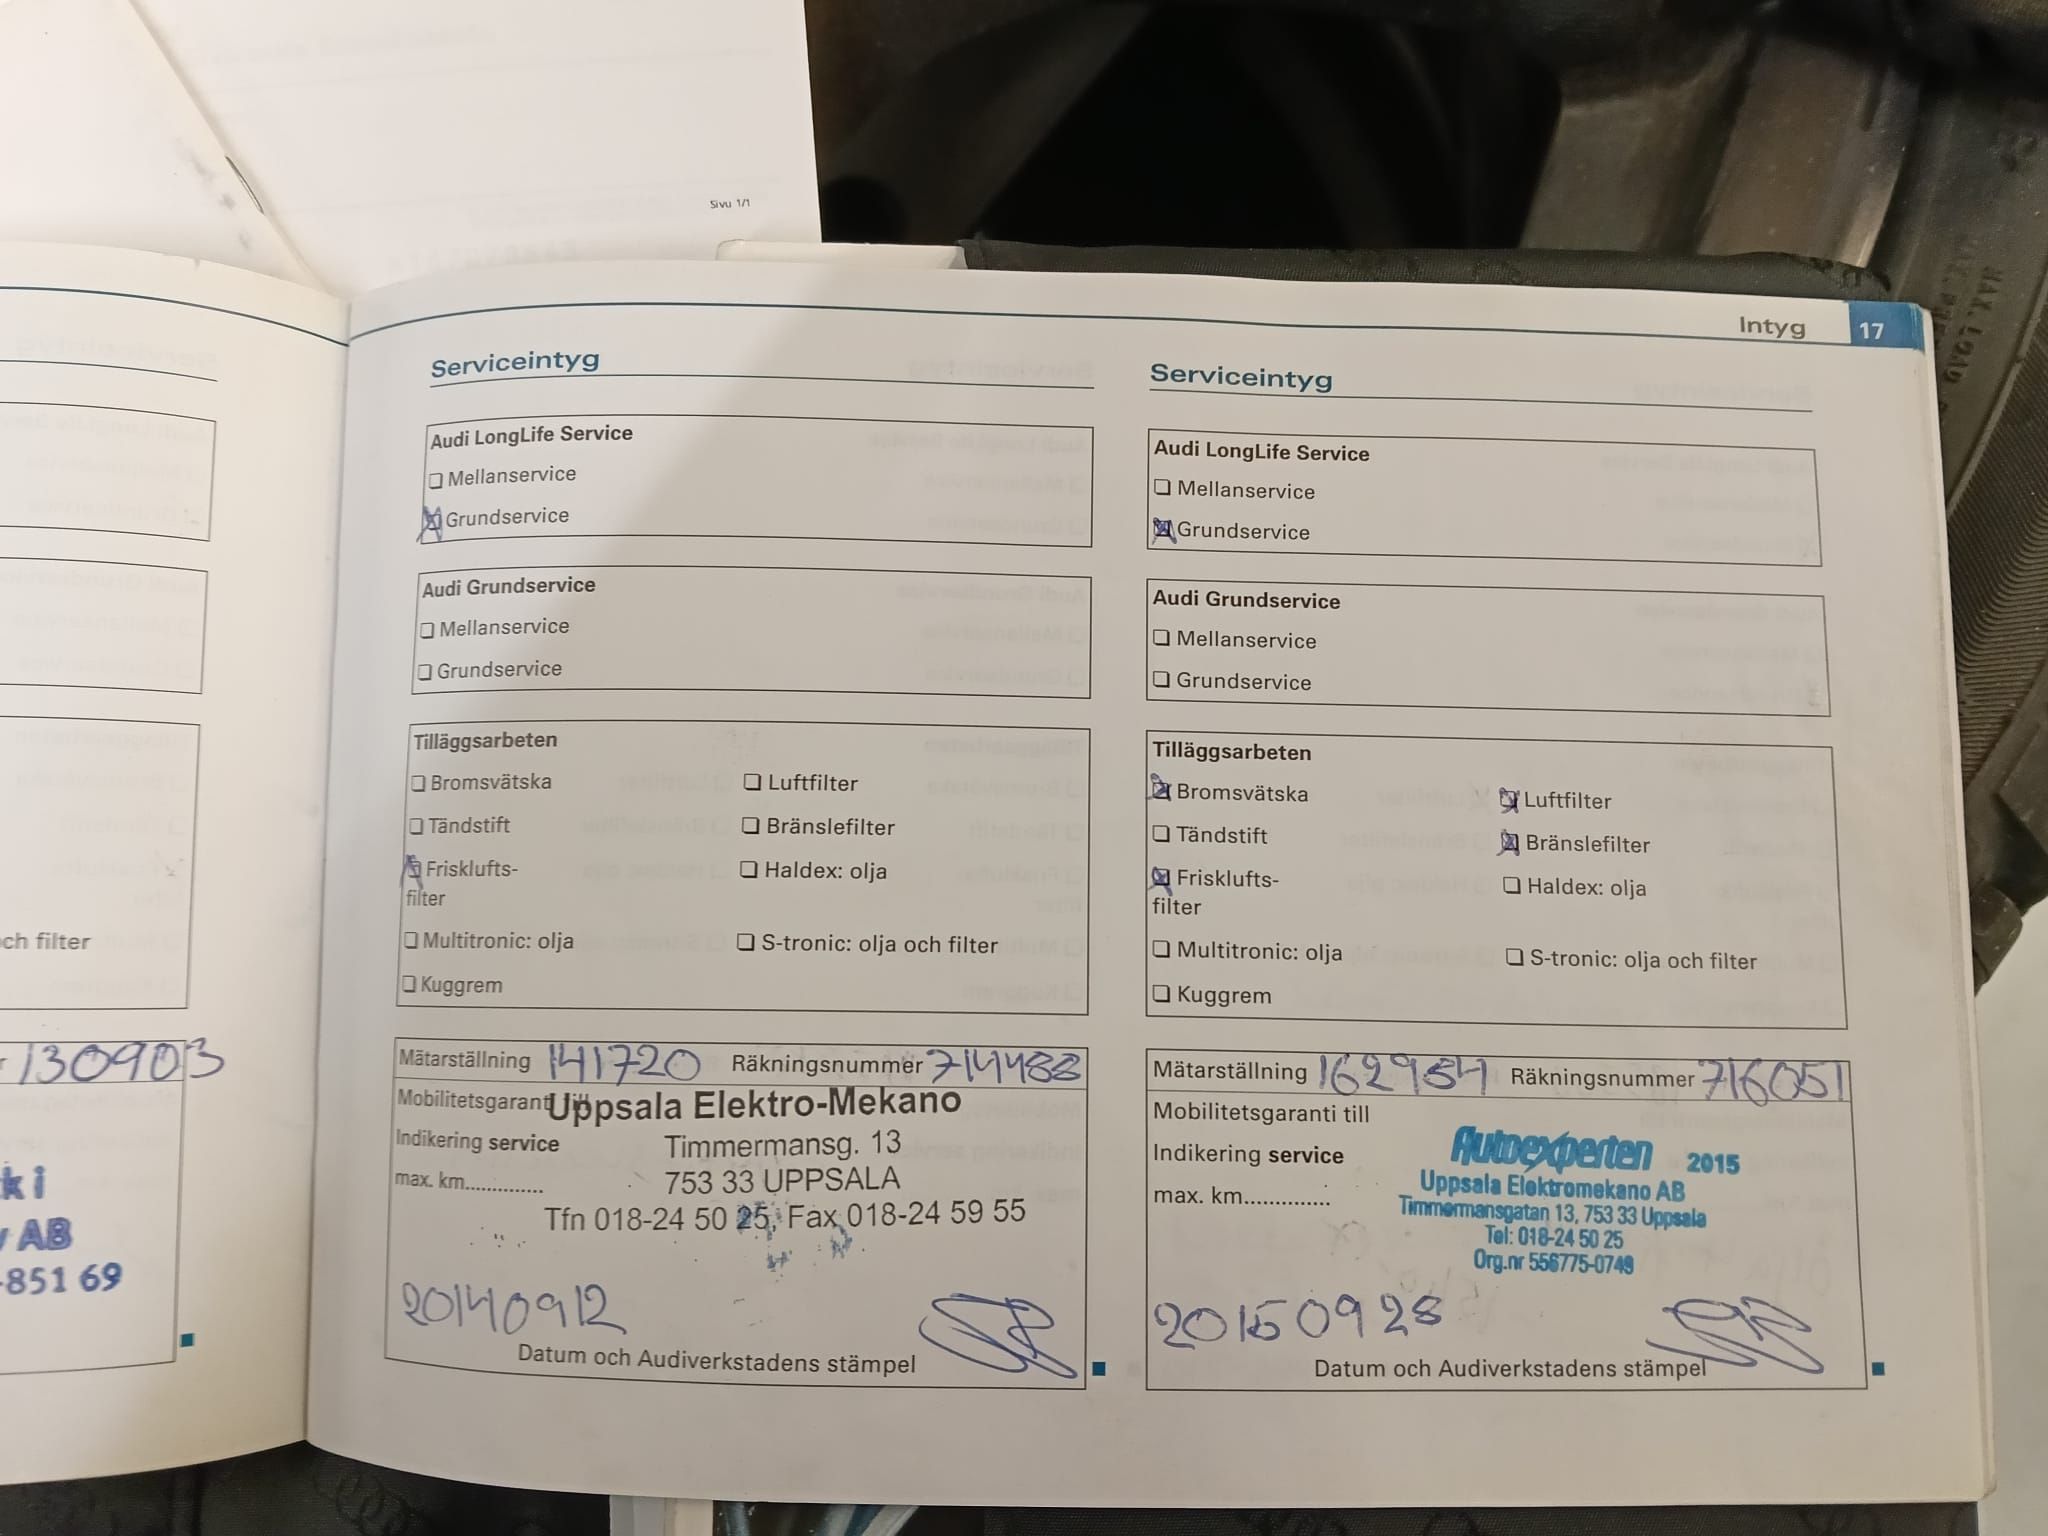 Sivu 1/1
Intyg 17
ch filter
130903
ki
AB
851 69
Serviceintyg
Audi LongLife Service
Mellanservice
Grundservice
Audi Grundservice
Mellanservice
Grundservice
Tilläggsarbeten
Bromsvätska Luftfilter
Tändstift Bränslefilter
Frisklufts- Haldex: olja
filter
Multitronic: olja S-tronic: olja och filter
Kuggrem
Mätarställning 141720 Räkningsnummer 714488
Mobilitetsgaranti till Uppsala Elektro-Mekano
Indikering service Timmermansg. 13
max. km.............. 753 33 UPPSALA
Tfn 018-24 50 25, Fax 018-24 59 55
20140912
Datum och Audiverkstadens stämpel
Serviceintyg
Audi LongLife Service
Mellanservice
Grundservice
Audi Grundservice
Mellanservice
Grundservice
Tilläggsarbeten
Bromsvätska Luftfilter
Tändstift Bränslefilter
Frisklufts- Haldex: olja
filter
Multitronic: olja S-tronic: olja och filter
Kuggrem
Mätarställning 162954 Räkningsnummer 716051
Mobilitetsgaranti till
Indikering service Autoexperten 2015
max. km.............. Uppsala Elektromekano AB
Timmermansgatan 13, 753 33 Uppsala
Tel: 018-24 50 25
Org.nr 556775-0749
20150928
Datum och Audiverkstadens stämpel